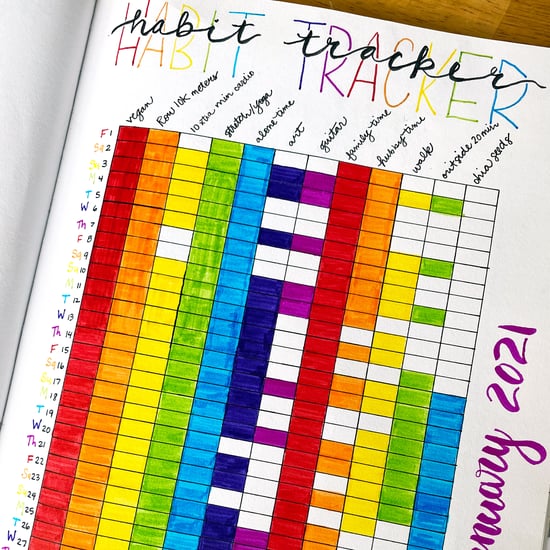 HABIT TRACKER
habit tracker
HABIT TRACKER
vegan
Row 10K meters
10 xtra min cardio
stretch/yoga
alone time
art
guitar
family time
hubby time
walk
outside 20min
chia seeds
F 1
Sa 2
Su 3
M 4
T 5
W 6
Th 7
F 8
Sa 9
Su 10
M 11
T 12
W 13
Th 14
F 15
Sa 16
Su 17
M 18
T 19
W 20
Th 21
F 22
Sa 23
Su 24
M 25
T 26
W 27
nuary 2021